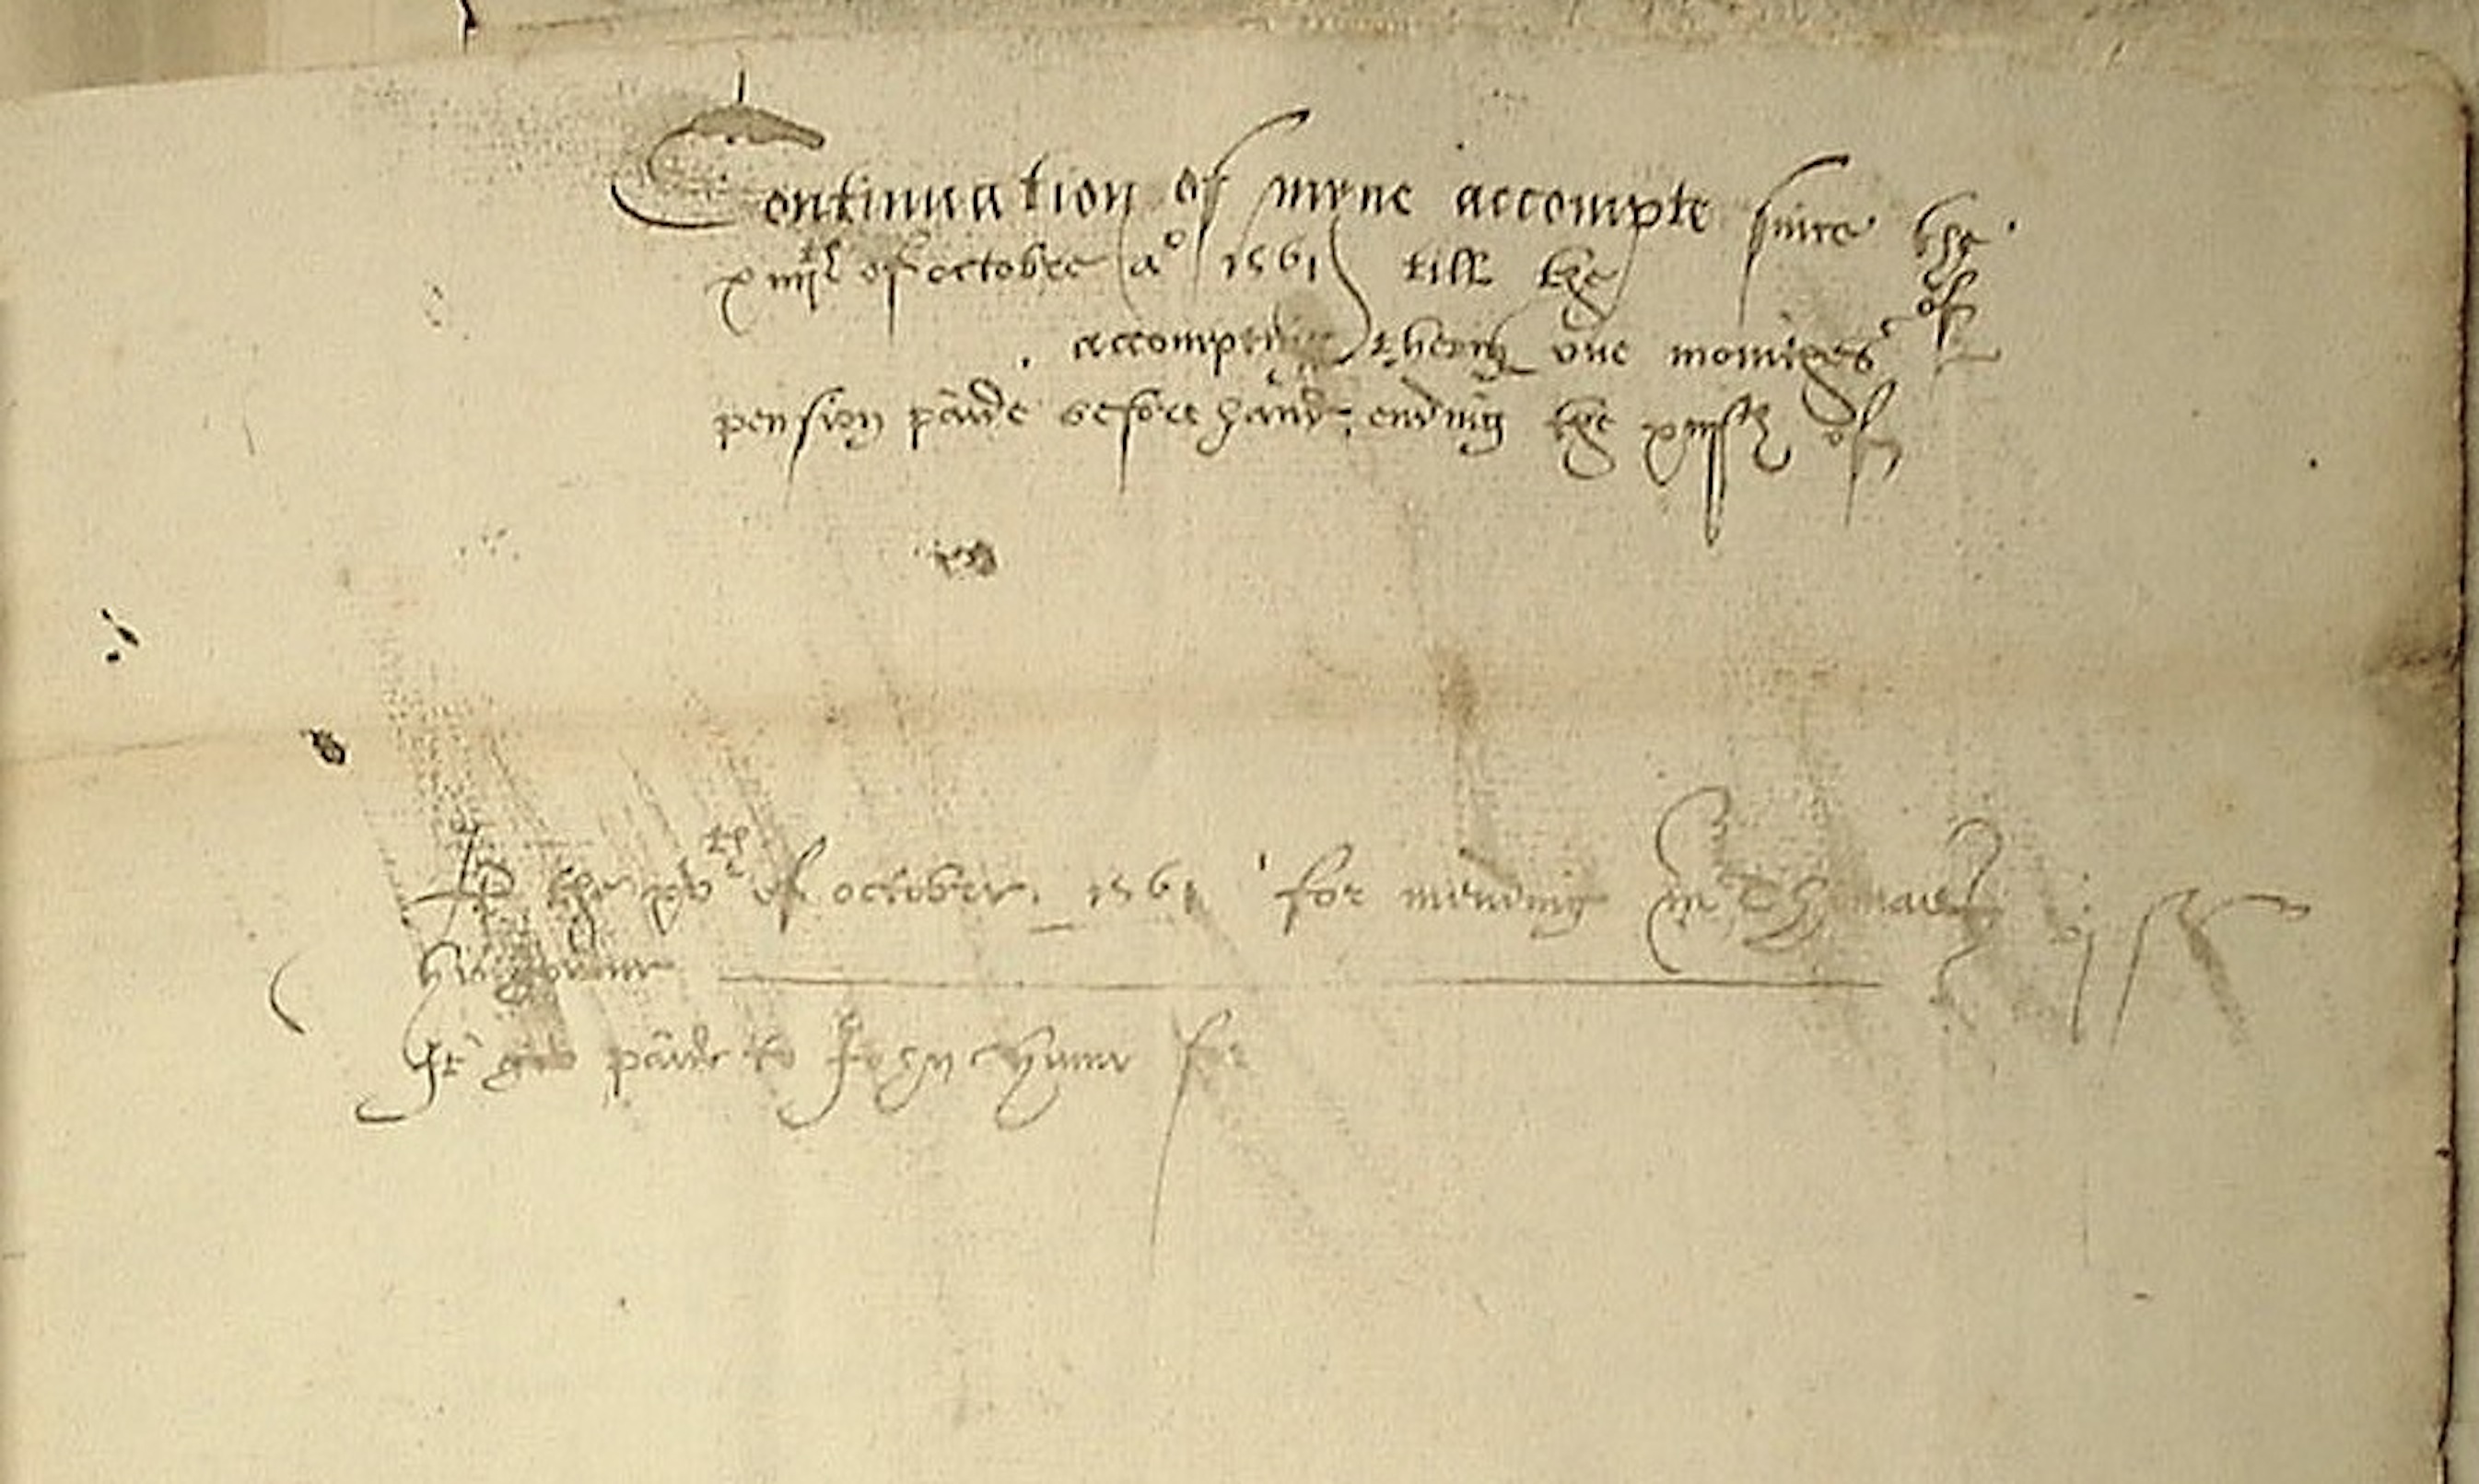 Continuation of myne accompte since the
xiiijth of octobre ao 1561 till the of
accompting therin one monthes
pension paide beforehand, ending the xiijth of
the xvth of october. 1561 for mending mr Thomas
It paide to John for